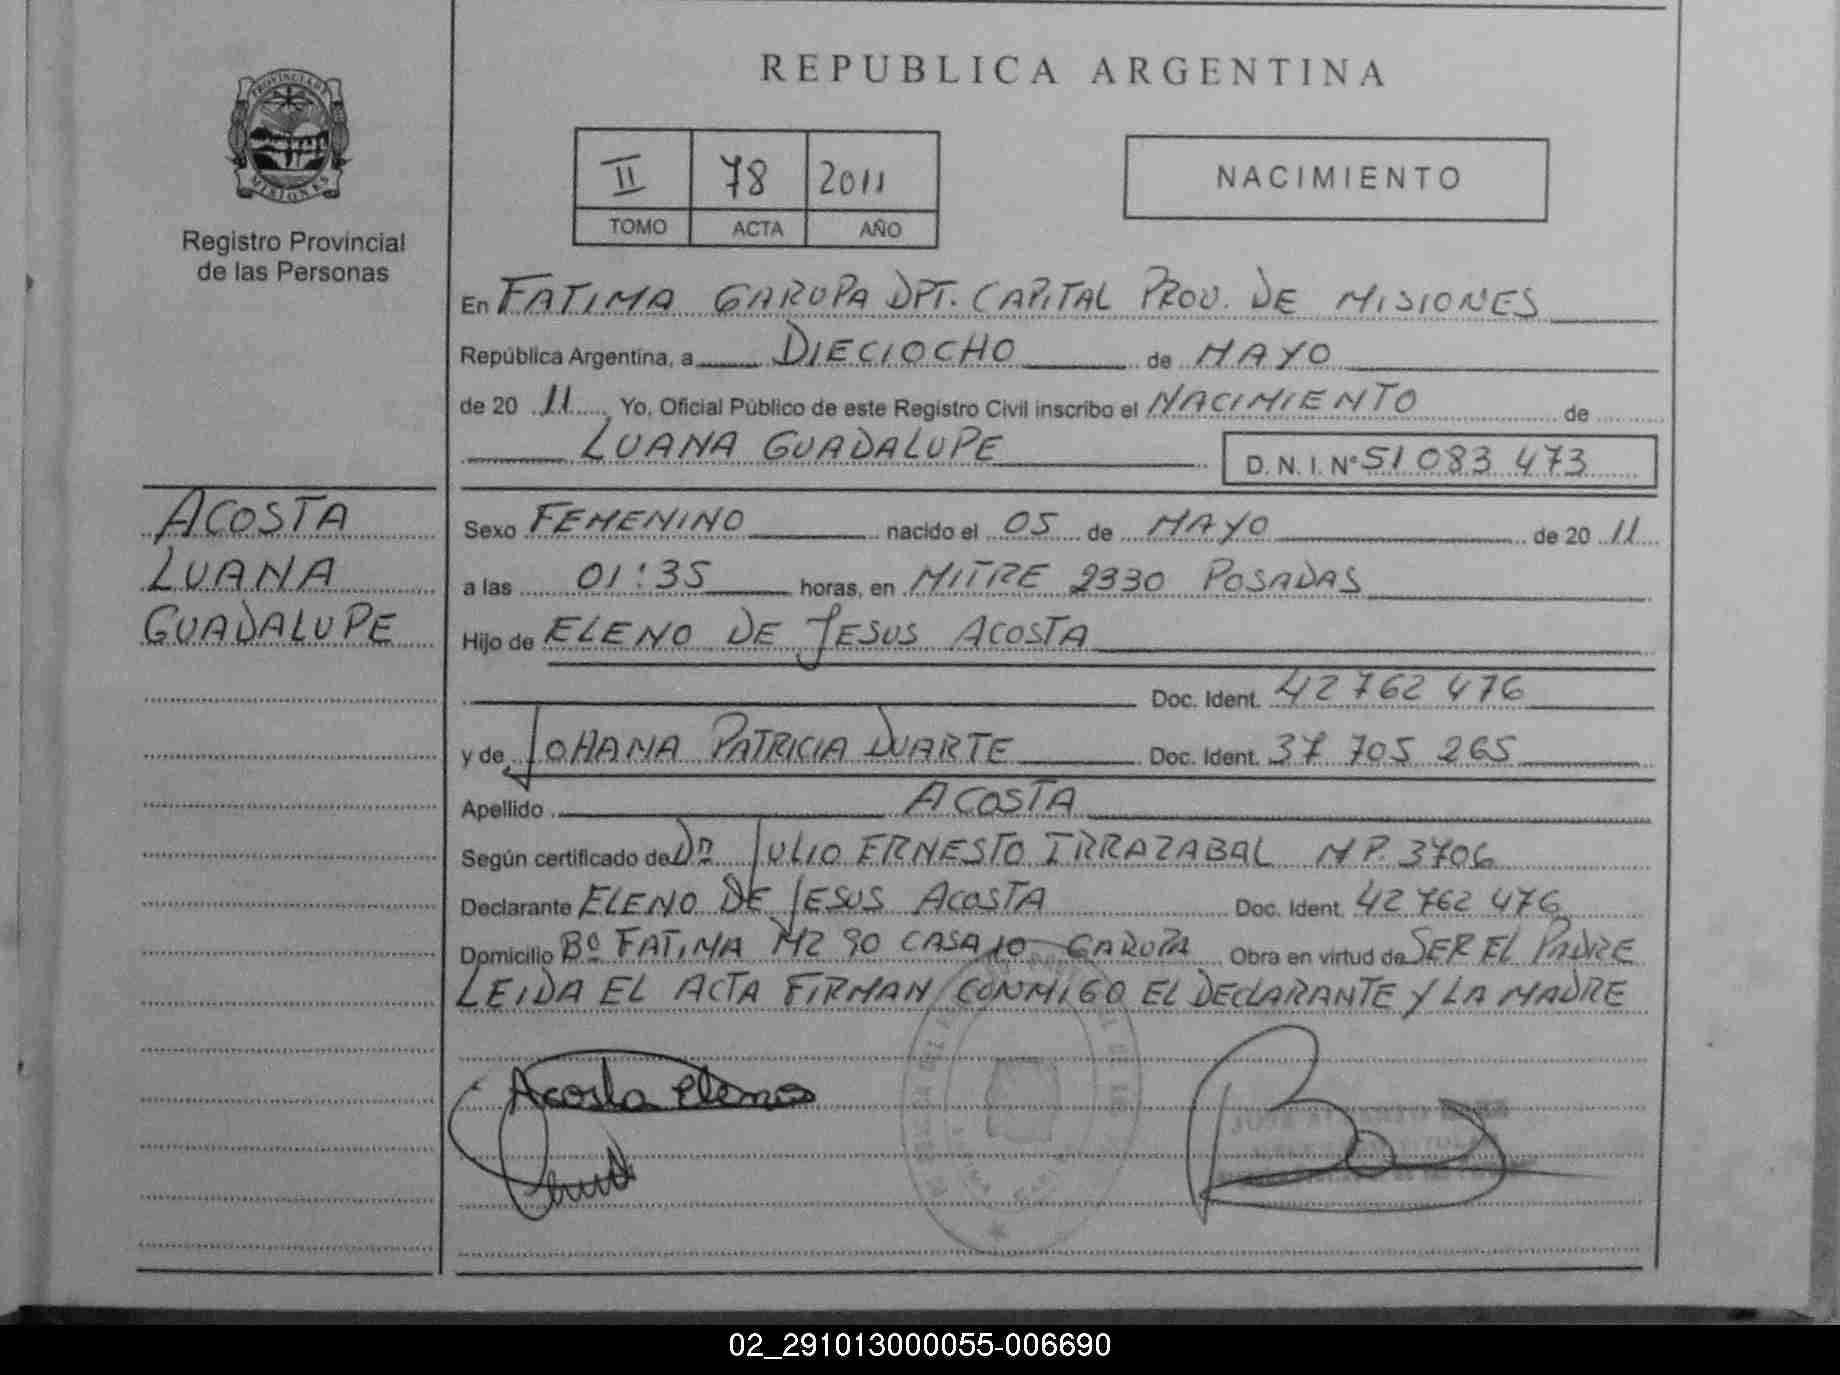 REPUBLICA ARGENTINA
PROVINCIA DE
MISIONES
Registro Provincial
de las Personas
II 78 2011
TOMO ACTA AÑO
NACIMIENTO
En FATIMA GARUPA DPT. CAPITAL PROV. DE MISIONES
República Argentina, a DIECIOCHO de MAYO
de 20 11 Yo, Oficial Público de este Registro Civil inscribo el NACIMIENTO de
LUANA GUADALUPE D.N.I. Nº 51 083 473
ACOSTA
LUANA
GUADALUPE
Sexo FEMENINO nacido el 05 de MAYO de 20 11
a las 01:35 horas, en MITRE 2330 POSADAS
Hijo de ELENO DE JESUS ACOSTA
Doc. Ident. 42 762 476
y de JOHANA PATRICIA DUARTE Doc. Ident. 37 705 265
Apellido ACOSTA
Según certificado de Dn JULIO ERNESTO IRRAZABAL MP. 3706
Declarante ELENO DE JESUS ACOSTA Doc. Ident. 42 762 476
Domicilio Bº FATIMA MZ 90 CASA 10 GARUPA Obra en virtud de SER EL PADRE
LEIDA EL ACTA FIRMAN CONMIGO EL DECLARANTE Y LA MADRE
Acosta eleno
02_291013000055-006690